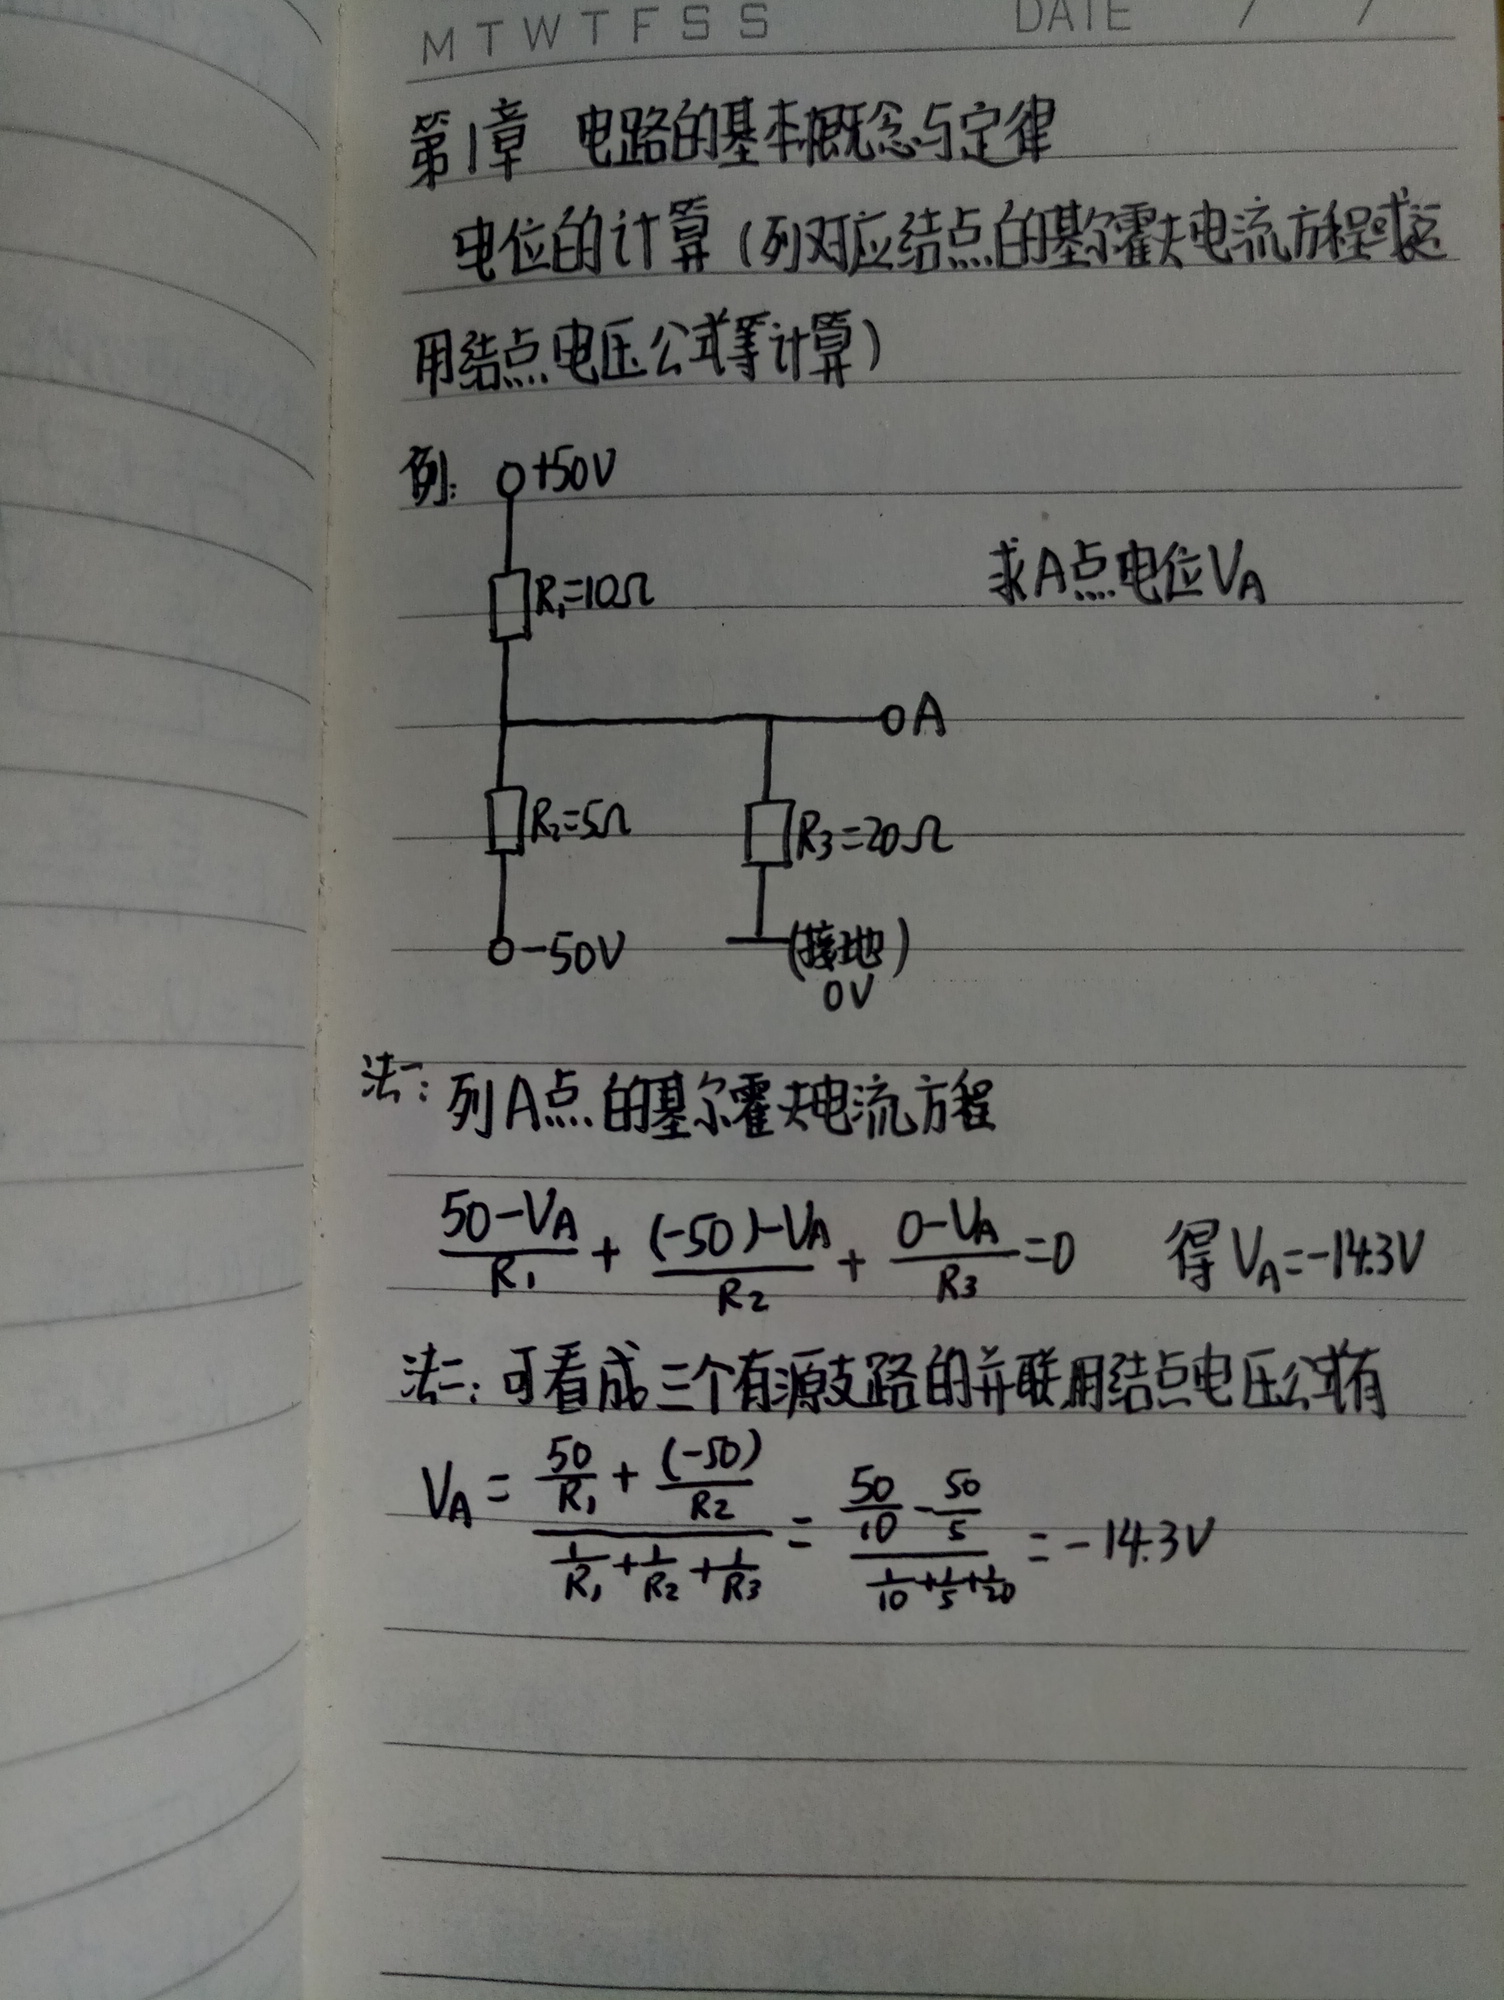 M T W T F S S DATE / /
第1章 电路的基本概念与定律
电位的计算(列对应结点的基尔霍夫电流方程或运
用结点电压公式等计算)
例: +50V
求A点电位VA
R₁=10Ω
A
R₂=5Ω
R₃=20Ω
-50V
(接地)
0V
法一: 列A点的基尔霍夫电流方程
(50-VA)/R₁ + ((-50)-VA)/R₂ + (0-VA)/R₃ = 0 得VA=-14.3V
法二: 可看成三个有源支路的并联用结点电压公式有
VA = (50/R₁ + (-50)/R₂)/(1/R₁ + 1/R₂ + 1/R₃) = (50/10 - 50/5)/(1/10 + 1/5 + 1/20) = -14.3V